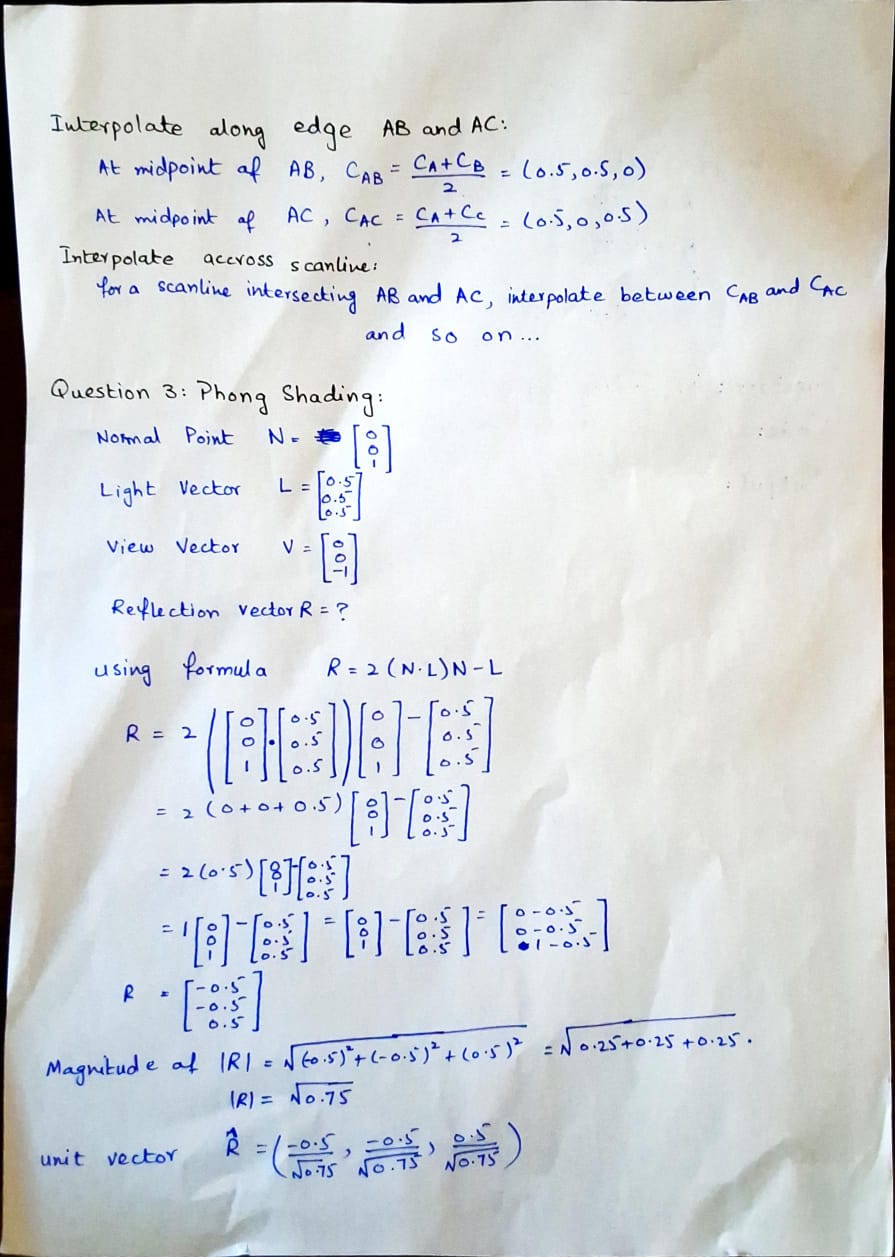 Interpolate along edge AB and AC:
At midpoint of AB, C_AB = (C_A + C_B)/2 = (0.5, 0.5, 0)
At midpoint of AC, C_AC = (C_A + C_C)/2 = (0.5, 0, 0.5)
Interpolate accross scanline:
for a scanline intersecting AB and AC, interpolate between C_AB and C_AC
and so on...
Question 3: Phong Shading:
Normal Point N = [0 0 1]
Light Vector L = [0.5 0.5 0.5]
View Vector V = [0 0 -1]
Reflection vector R = ?
using formula R = 2(N·L)N - L
R = 2([0 0 1]·[0.5 0.5 0.5])[0 0 1] - [0.5 0.5 0.5]
= 2(0+0+0.5)[0 0 1] - [0.5 0.5 0.5]
= 2(0.5)[0 0 1] - [0.5 0.5 0.5]
= 1[0 0 1] - [0.5 0.5 0.5] = [0 0 1] - [0.5 0.5 0.5] = [0-0.5 0-0.5 1-0.5]
R = [-0.5 -0.5 0.5]
Magnitude of |R| = √((-0.5)² + (-0.5)² + (0.5)²) = √(0.25+0.25+0.25).
|R| = √0.75
unit vector R̂ = (-0.5/√0.75, -0.5/√0.75, 0.5/√0.75)